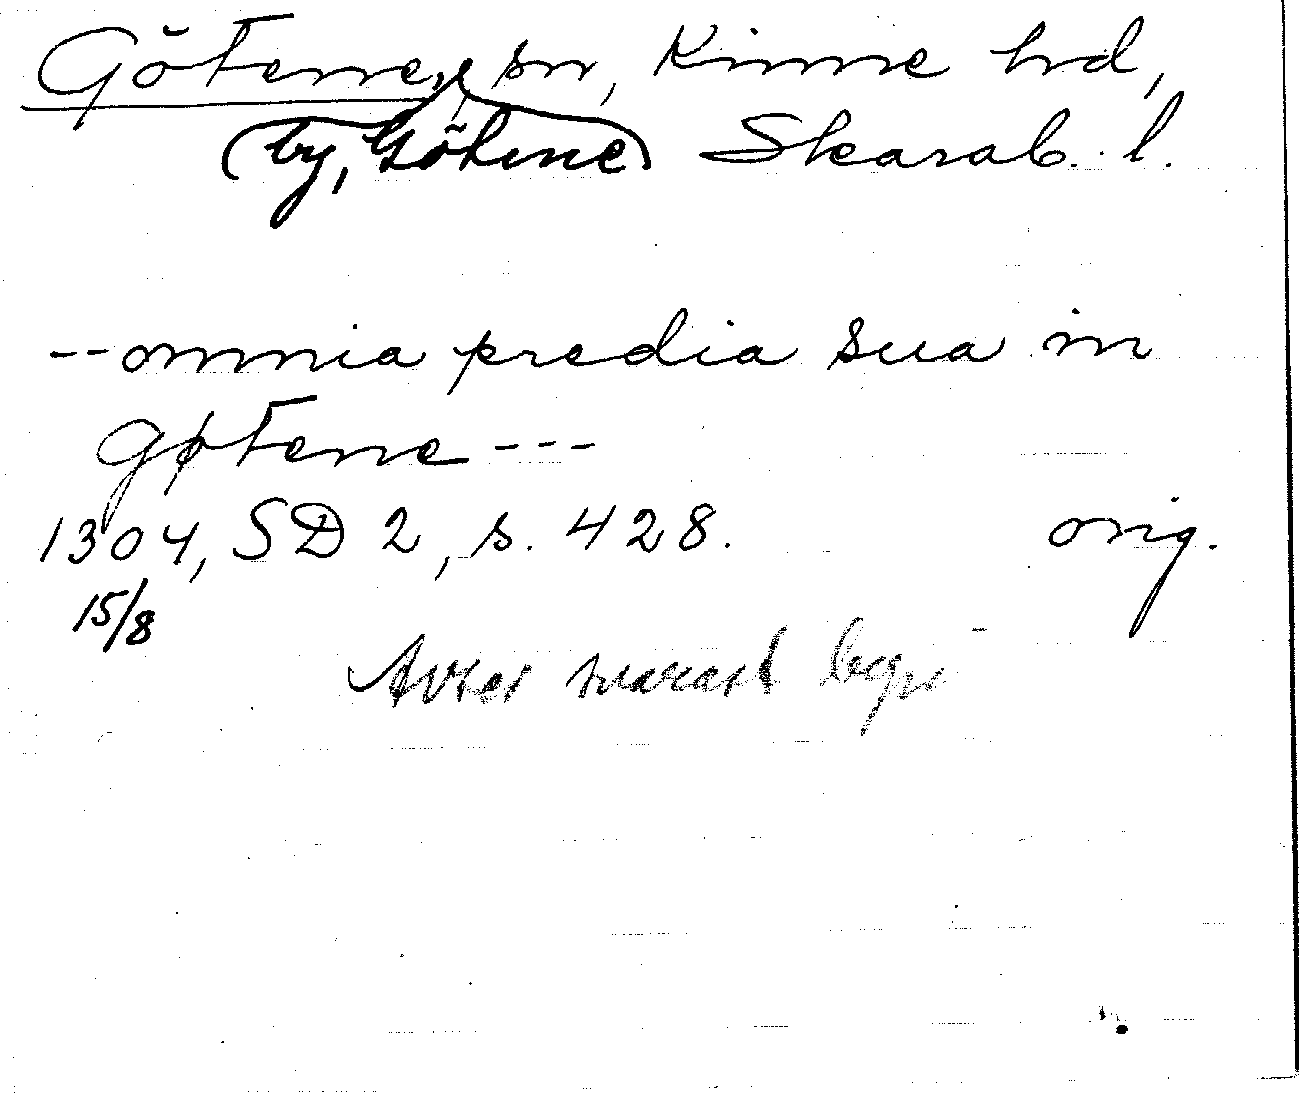 Götene, sn, Kinne hd,
(by, Götene) Skarab. l.
--omnia predia sua in
gøtene ---
1304, SD 2, s. 428. orig.
15/8
Avser svarast byn